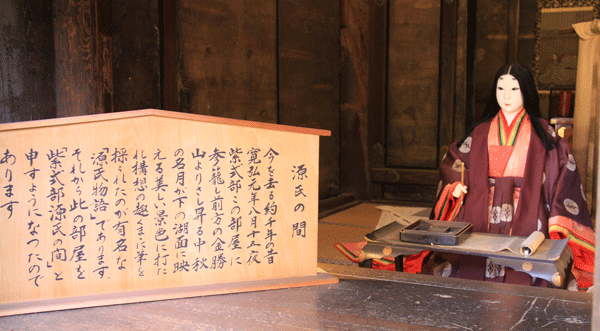 源氏の間
今を去る約千年の昔
寛弘元年八月十五夜
紫式部この部屋に
参籠、前方の金勝
山よりさし昇る中秋
の名月が下の湖面に映
える美しい景色に打た
れ構想の趣くままに筆を
採られたのが有名な
「源氏物語」であります
それから此の部屋を
「紫式部源氏の間」と
申すようになつたので
あります